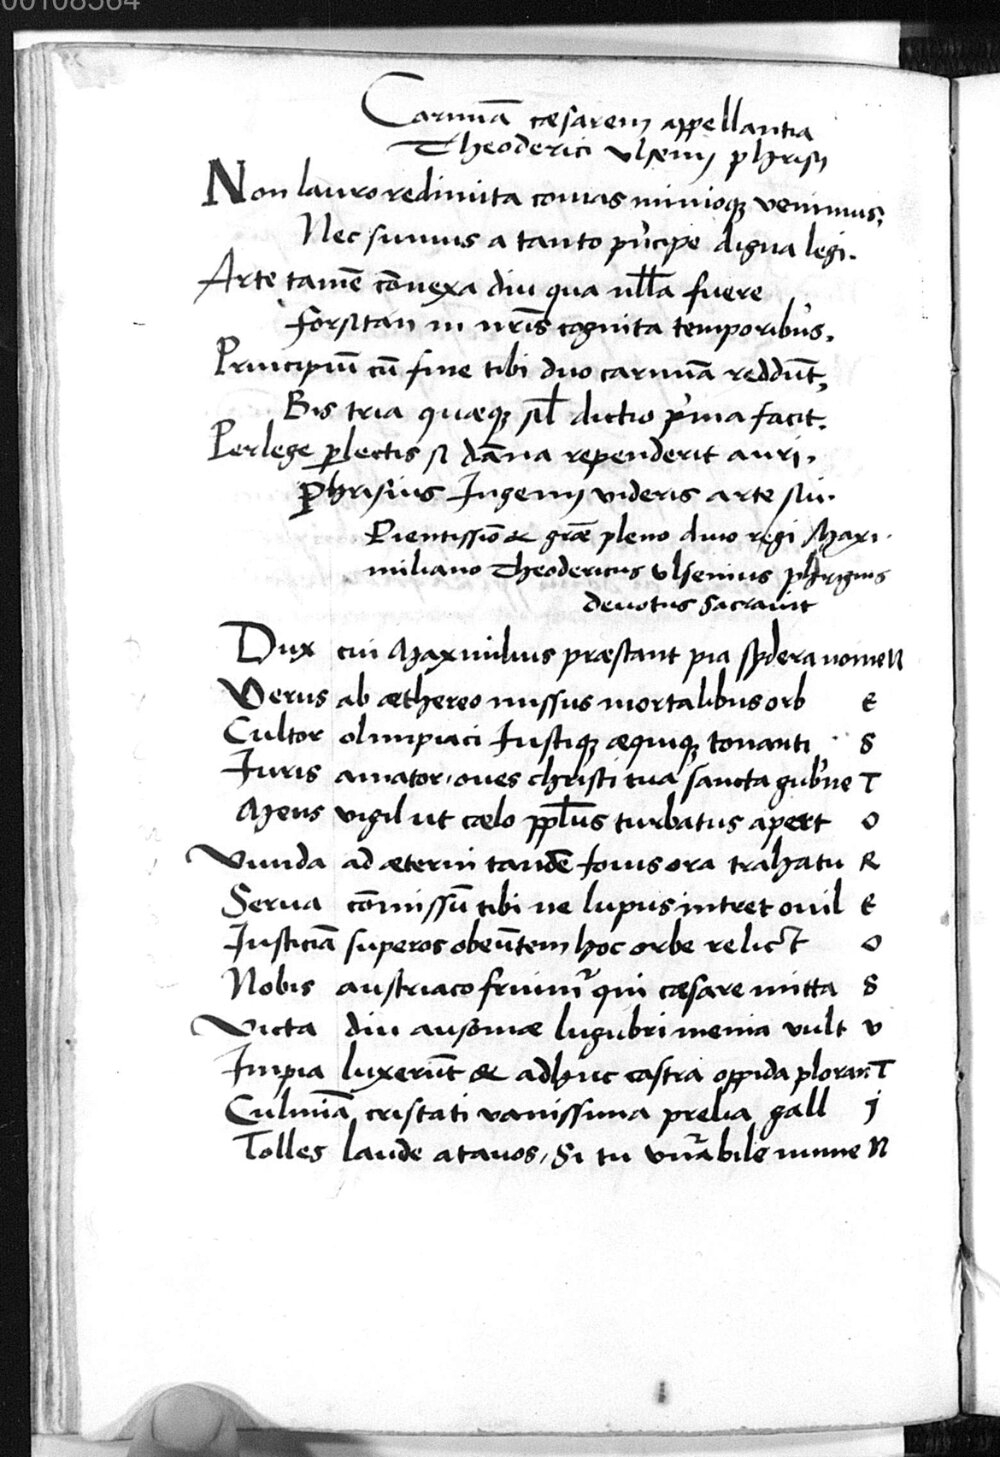 00108564
Carminā cæsarem appellantia
Theoderici vlsenij phrisij
Non lauro redimita comas minioq venimus,
Nec sumus a tanto pricipe digna legi.
Arte tamē cōnexa diu qua nlla fuere
forsitan in nris cognita temporibus.
Principiū cū fine tibi duo carminā reddūt,
Bis tria quæq sil dictio prima facit.
Perlege plectis si dāna rependerit auri,
Phrisius Ingenij videris arte sui.
Pientissiō & grāe pleno diuo regi Maxi
miliano Theodericus vlsenius phrigius
deuotus sacrauit
Dux cui Maxmilius præstant pia sydera nomeN
Verus ab æthereo missus mortalibus orb E
Cultor olimpiaci Iustiq æquiq tonanti S
Iuris amator, oues christi tua sancta gubne T
Mens vigil ut cælo pplus turbatus apert O
Vnda ad æterni tandē Iouis ora trahatu R
Serua cōmissū tibi ne lupus intret ouil E
Iusticiā superos obeūtem hoc orbe relict O
Nobis austriaco fruimr qui cæsare mitta S
Victa diu ausoniæ lugubri menia vult V
Impia luxerūt & adhuc castra oppida ploran T
Culminā cristati vanissima prelia gall j
Tolles laude atauos, Si tu vnrabile nume N